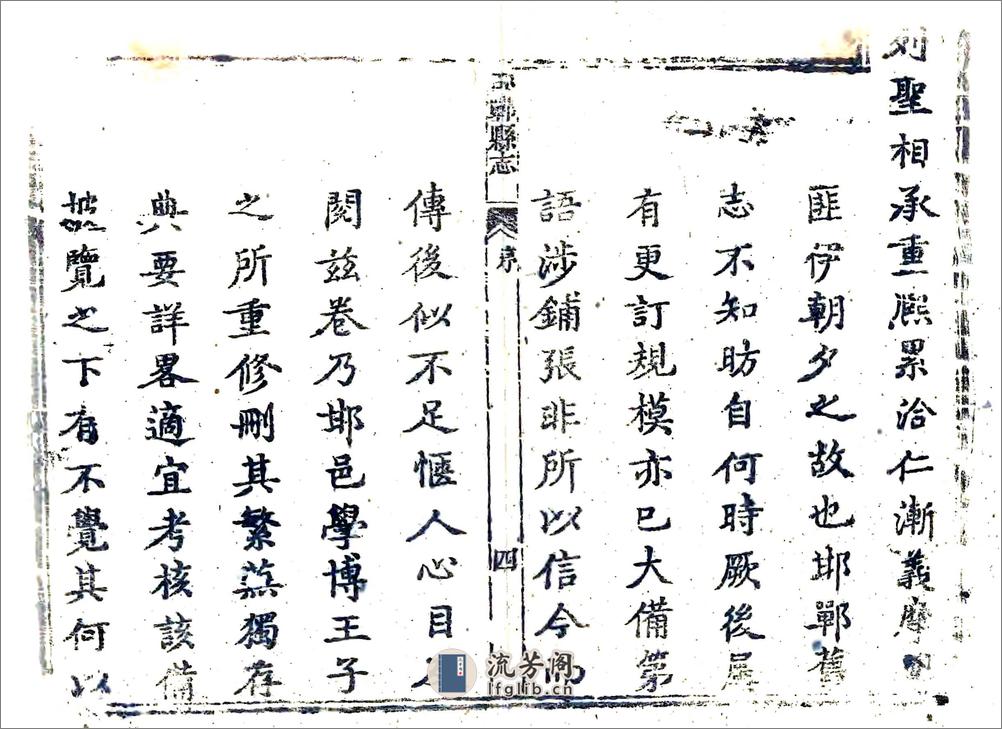 列聖相承重熈累洽仁漸義摩
匪伊朝夕之故也邯鄲舊
志不知昉自何時厥後屢
有更訂規模亦已大備第
語涉鋪張非所以信今而
邯鄲縣志
序
四
傳後似不足愜人心目
閱兹卷乃邯邑學博王子
之所重修刪其繁蕪獨存
典要詳畧適宜考核該備
披覽之下有不覺其何以
流芳阁
lfglib.cn